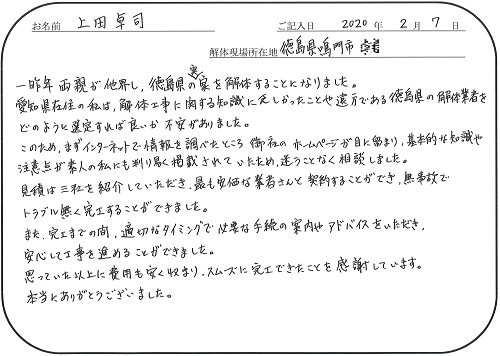 お名前 上田卓司 ご記入日 2020 年 2 月 7 日
解体現場所在地 徳島県鳴門市
一昨年両親が他界し、徳島県の実家を解体することになりました。
愛知県在住の私は、解体工事に関する知識に乏しかったことや遠方である徳島県の解体業者を
どのように選定すれば良いか不安がありました。
このため、まずインターネットで情報を調べたところ御社のホームページが目に留まり、基本的な知識や
注意点が素人の私にも判り易く掲載されていたため、迷うことなく相談しました。
見積は三社を紹介していただき、最も安価な業者さんと契約することができ、無事故で
トラブル無く完工することができました。
また、完工までの間、適切なタイミングで必要な手続の案内やアドバイスをいただき、
安心して工事を進めることができました。
思っていた以上に費用も安く収まり、スムーズに完工できたことを感謝しています。
本当にありがとうございました。